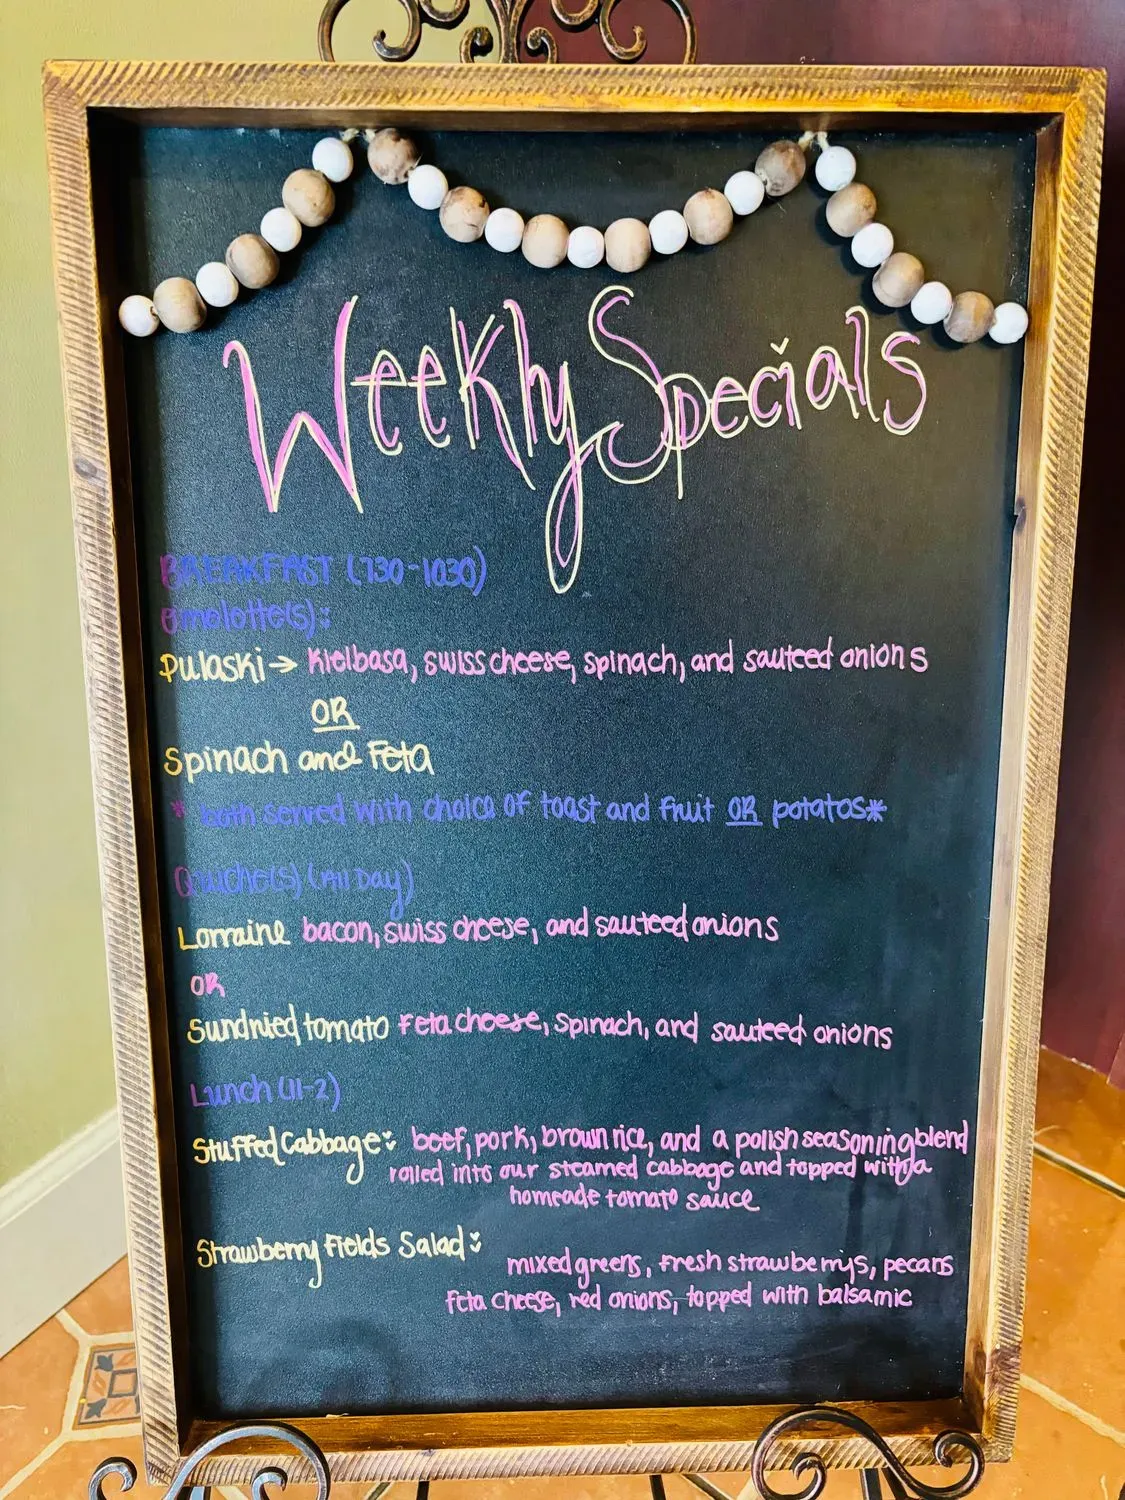 Weekly Specials
BREAKFAST (730-1030)
Omelotte(s):
Pulaski → Kielbasa, swiss cheese, spinach, and sauteed onions
OR
Spinach and Feta
* both served with choice of toast and fruit OR potatos*
Quiche(s) (All Day)
Lorraine bacon, swiss cheese, and sauteed onions
OR
Sundried tomato Feta cheese, spinach, and sauteed onions
Lunch (11-2)
Stuffed Cabbage: beef, pork, brown rice, and a polish seasoning blend
rolled into our steamed cabbage and topped with a
homeade tomato sauce
Strawberry Fields Salad:
mixed greens, fresh strawberrys, pecans
feta cheese, red onions, topped with balsamic